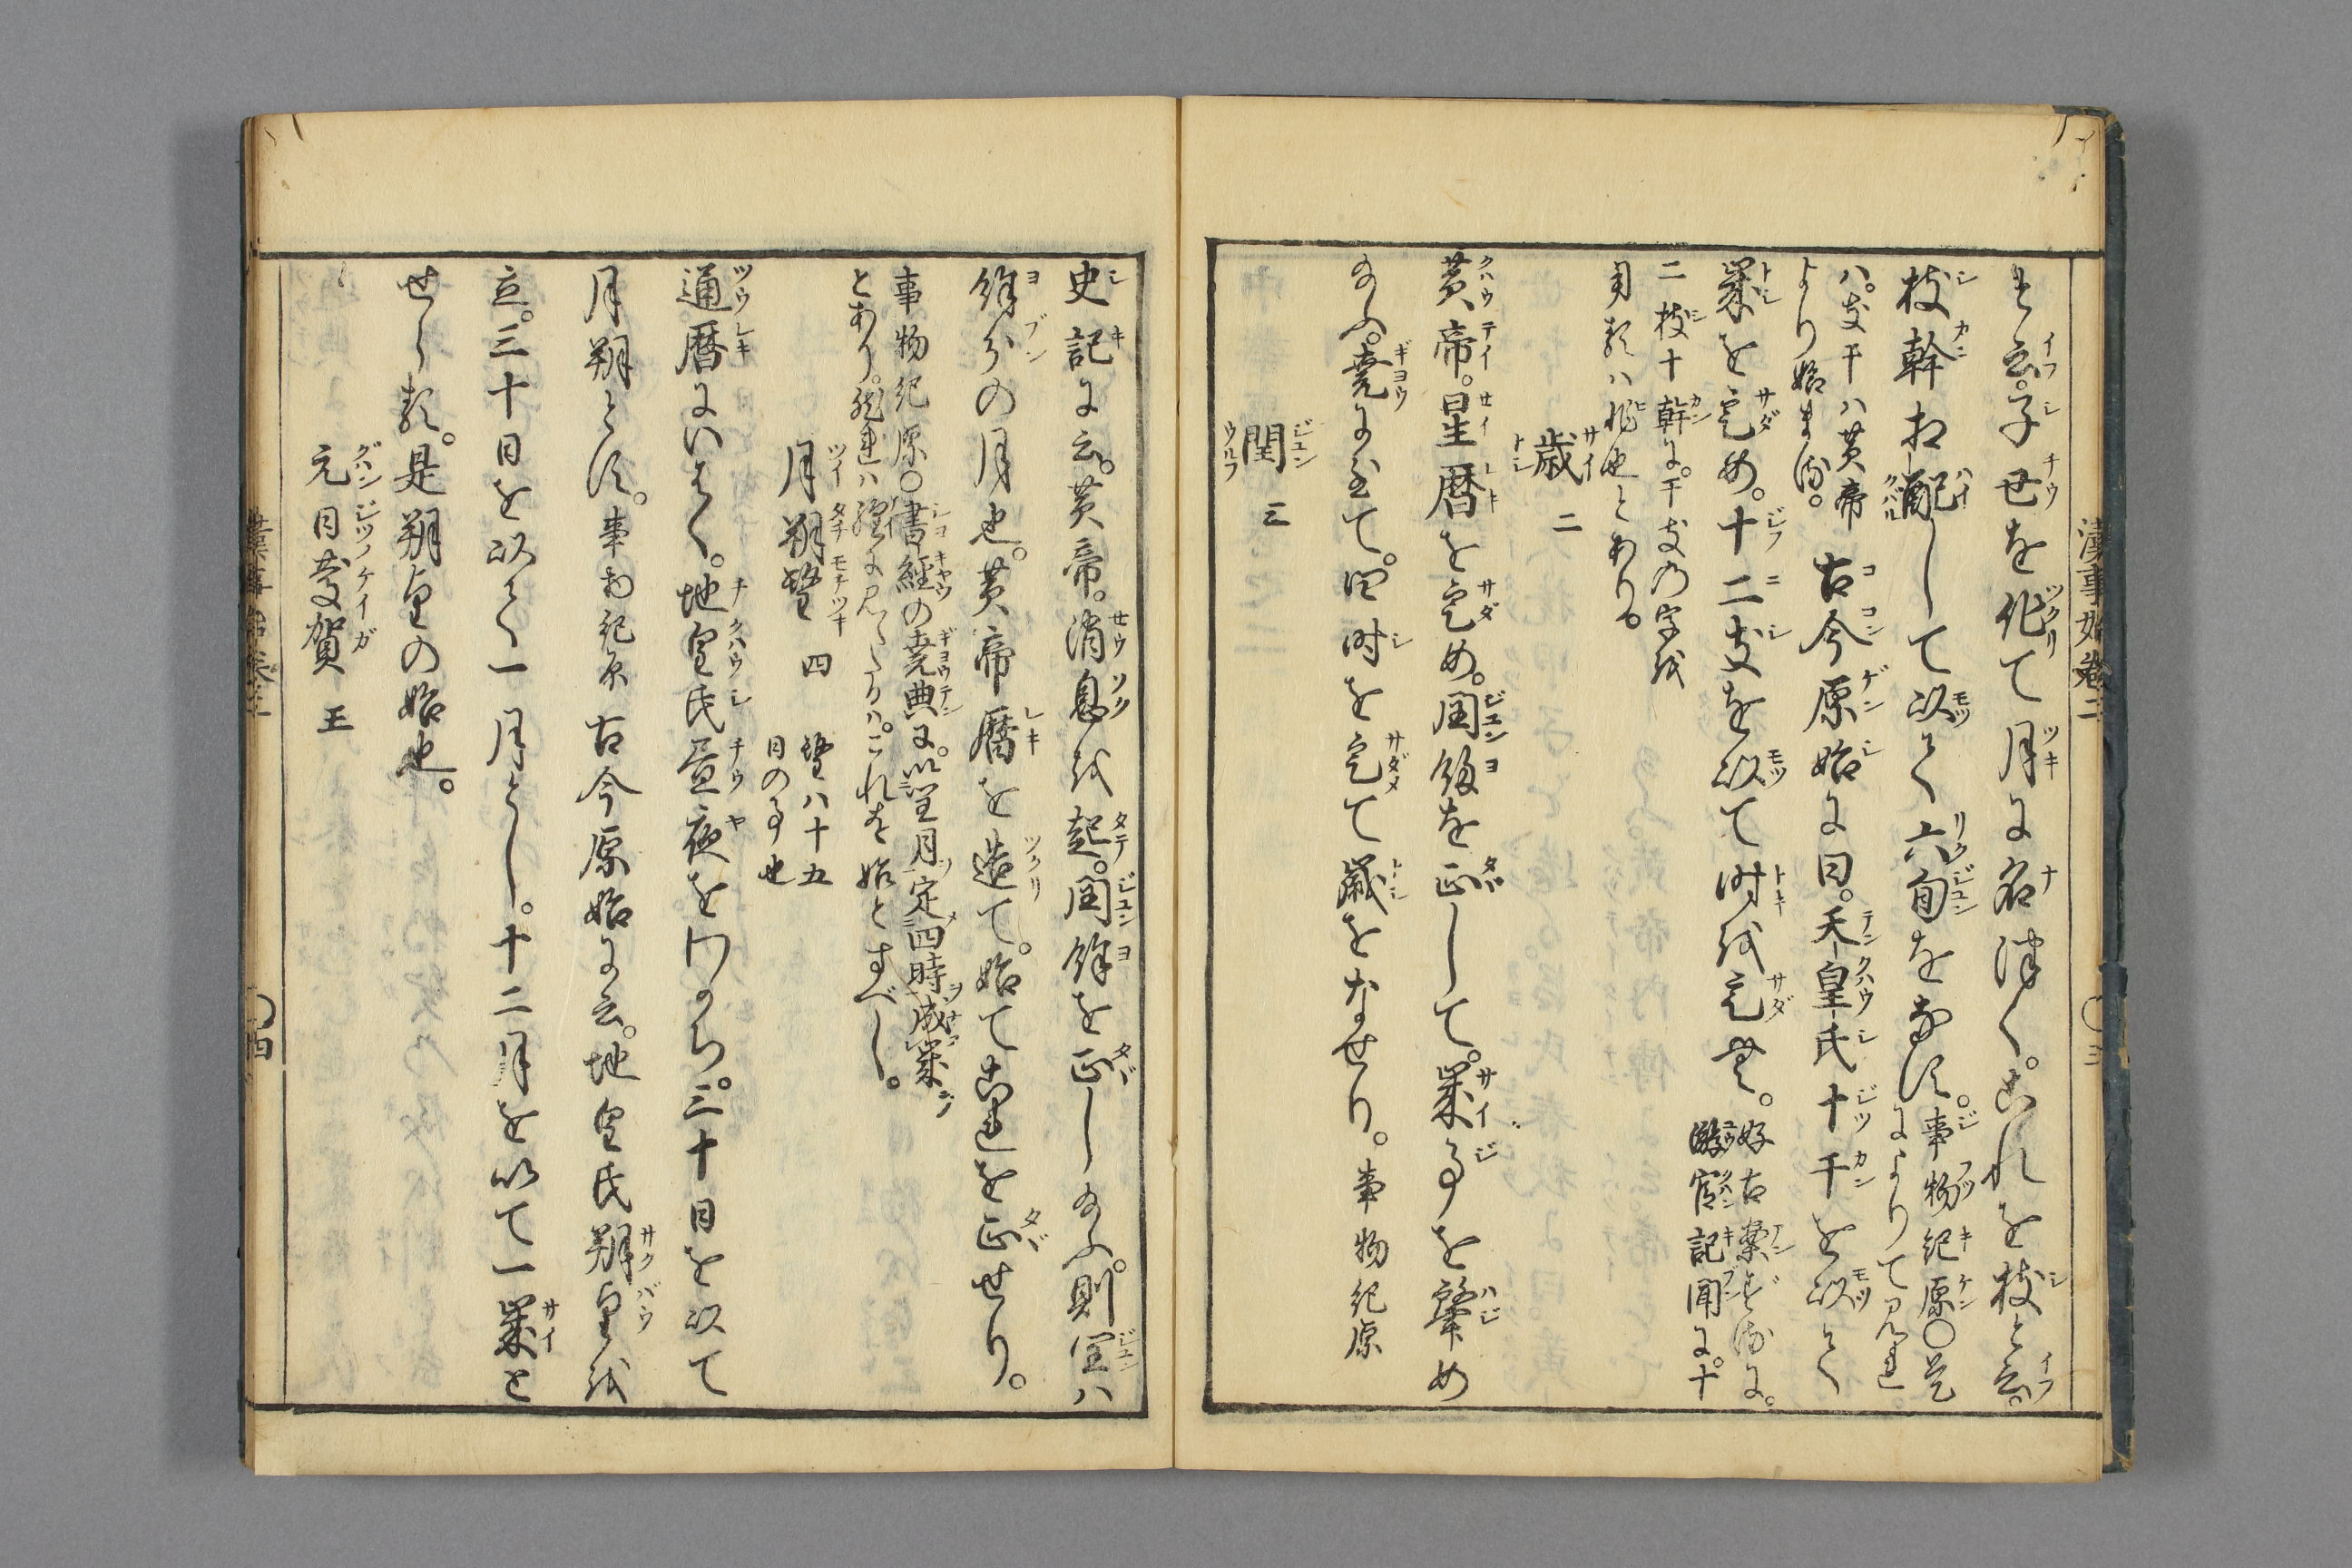 と云。子丑を作て月に名津く。これを枝と云。
枝幹相配して以て六旬を為す。事物紀原〇是
によりて見れ
八。支干ハ黄帝
より始まる。
古今原始に曰。天皇氏十干を以て
歳を定め。十二支を以て時を定む。好古案ずるに。
遊宦記聞に。十
二枝十幹に。干支の字を
用るハ非也とあり。
歳 二
黄帝。星暦を定め。閏餘を正して。歳事を肇め
給ふ。堯に至て。四時を定て歳をなせり。事物紀原
閏 三
漢事始巻二
〇三
史記に云。黄帝。消息を起。閏餘を正し給ふ。則閏ハ
餘分の月也。黄帝暦を造て。始てこれを正せり。
事物紀原〇書経の堯典に。以閏月定四時成歳
とあり。然れハ経に見へたるハ。これを始とすべし。
月朔望 四
望ハ十五
日の事也
通暦にいはく。地皇氏昼夜をわかち。三十日を以て
月朔とす。事物紀原
古今原始に云。地皇氏朔望を
立。三十日を以て一月とし。十二月を以て一歳と
せしる。是朔望の始也。
元日慶賀 五
漢事始巻二
〇四